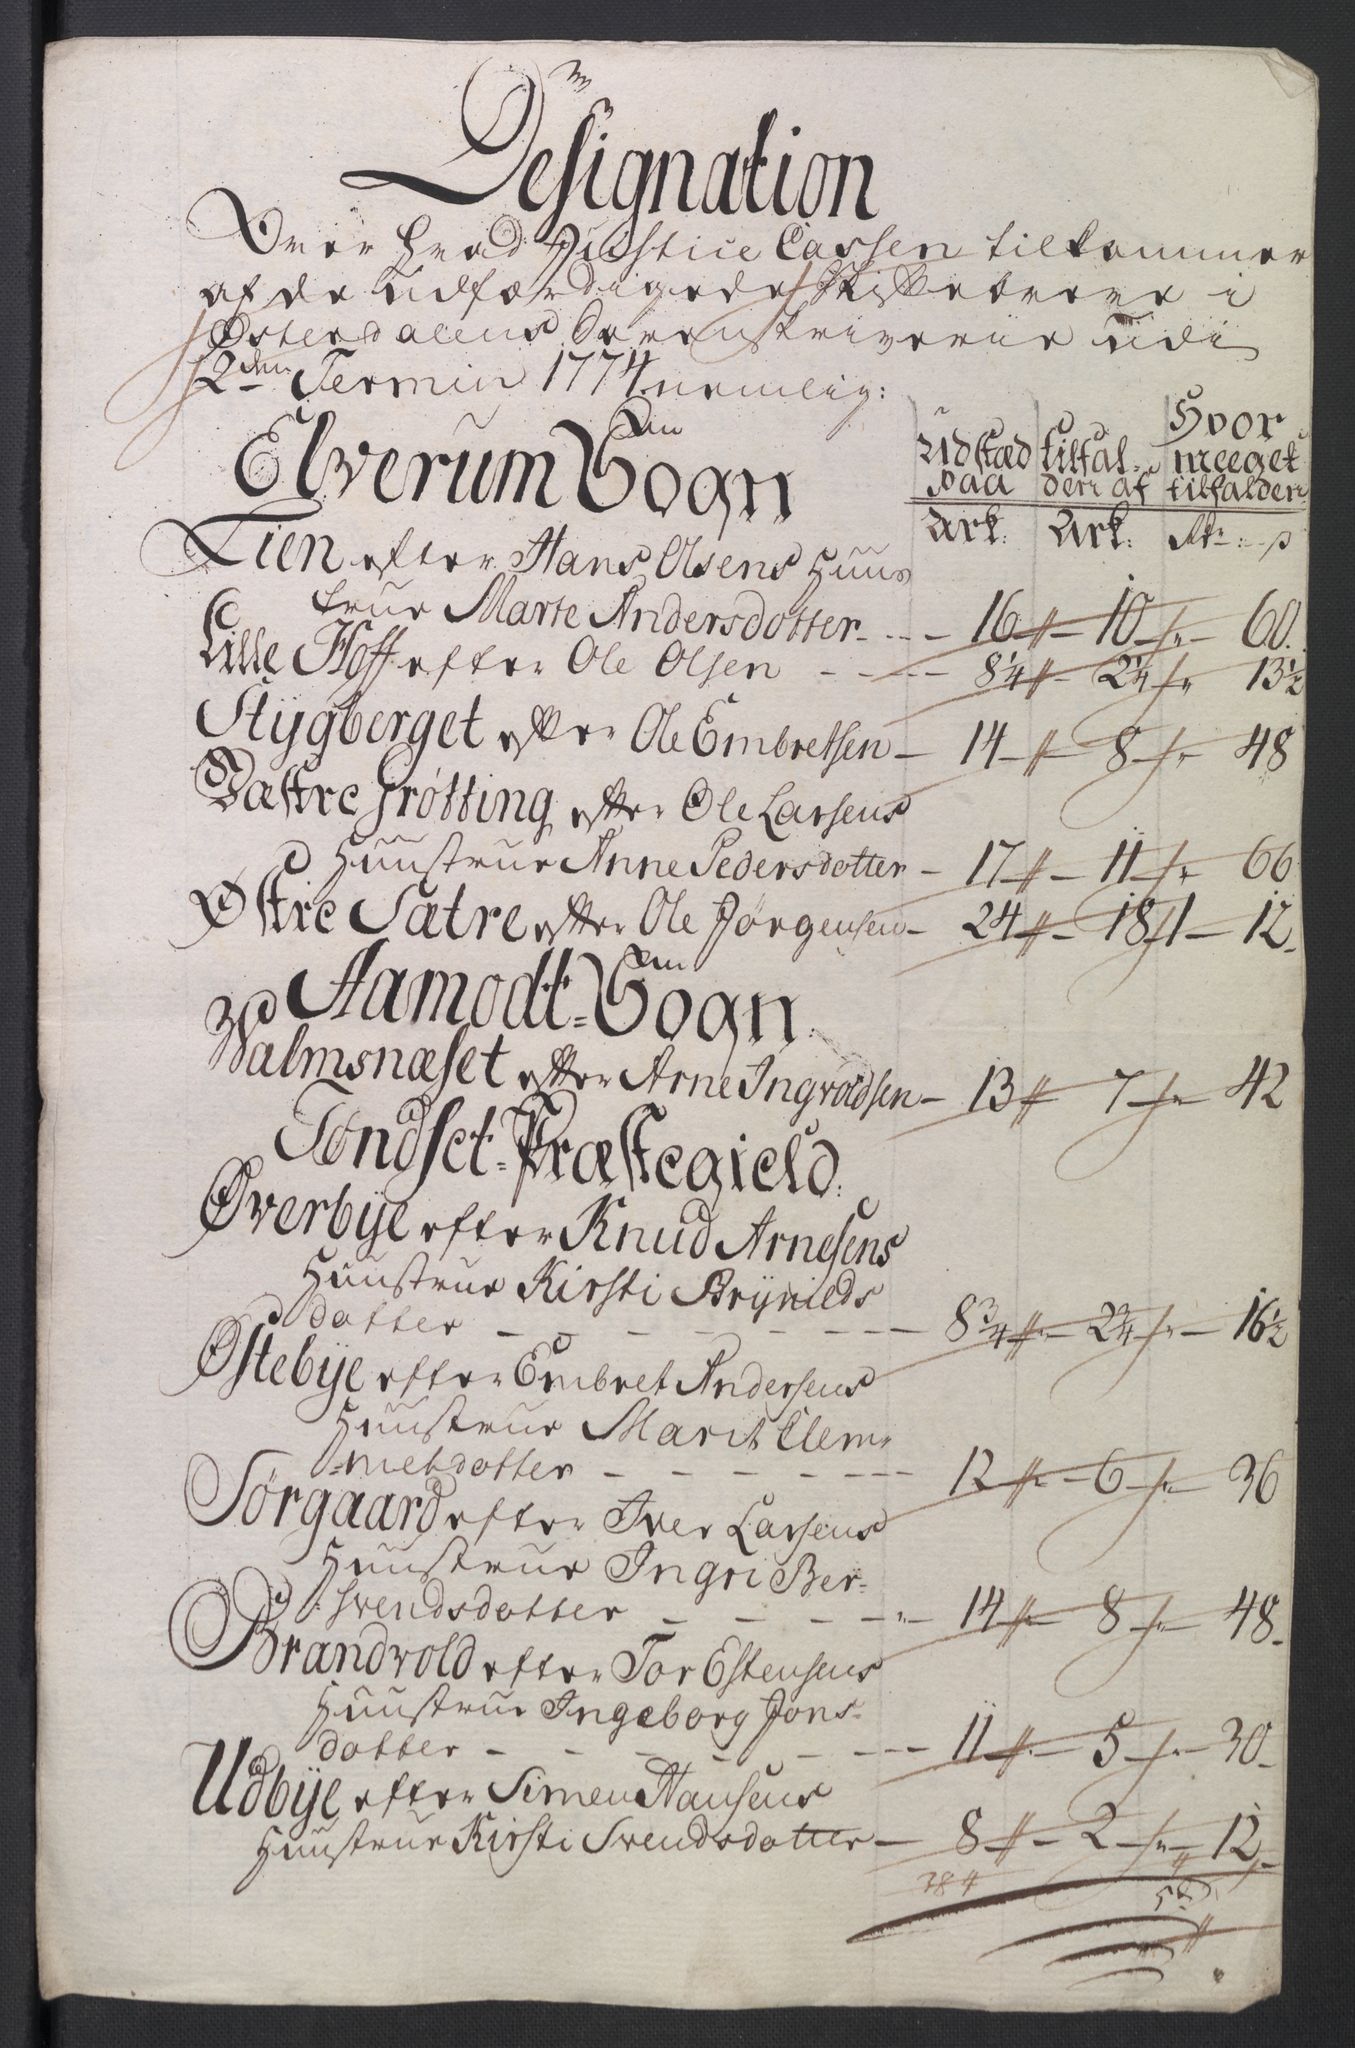 Designation
Over hvad Justice Cassen tilkommer
af de udfærdigede Skiftebreve i
Østerdalens Sorenskriverie udi
2den Termin 1774 nemlig:
Elverum Sogn
Udstæd paa | tilfalden af | Hvor meeget tilfalden
Ark: | Ark: | Rdr: ß
Lien efter Hans Olsens Huus
true Marte Andersdotter - 16 - 10 - 60.
Lille Hoff efter Ole Olsen - 8 1/4 - 2 1/4 - 13 1/2
Stygberget efter Ole Embretsen - 14 - 8 - 48
Væstre Grøtting efter Ole Larsens
Huustrue Anne Pedersdotter - 17 - 11 - 66
Østre Sætre efter Ole Jørgensen - 24 - 18 1 - 12 -
Aamodt=Sogn
Walmsnæset efter Arne Ingvoldsen - 13 - 7 - 42
Tøndset=Præstegield:
Øverbye efter Knud Arnesens
Huustrue Kirsti Brynilds
dotter - 8 3/4 - 2 3/4 - 16 1/2
Østebye efter Embret Andersens
Huustrue Marit Clem=
=metdotter - 12 - 6 - 36
Sørgaard efter Iver Larsens
Huustrue Ingri Ber=
svendsdotter - 14 - 8 - 48 -
Brandvold efter Tor Estensens
Huustrue Ingeborg Jons=
dotter - 11 - 5 - 30 -
Udbye efter Simen Hansens
Huustrue Kirsti Svendsdotter - 8 - 2 - 12 -